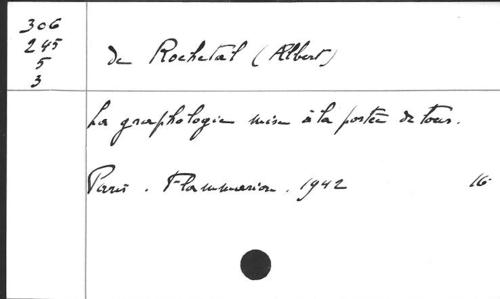 306
245
5
3
de Rochetal (Albert)
La graphologie mise à la portée de tous.
Paris. Flammarion. 1942 16